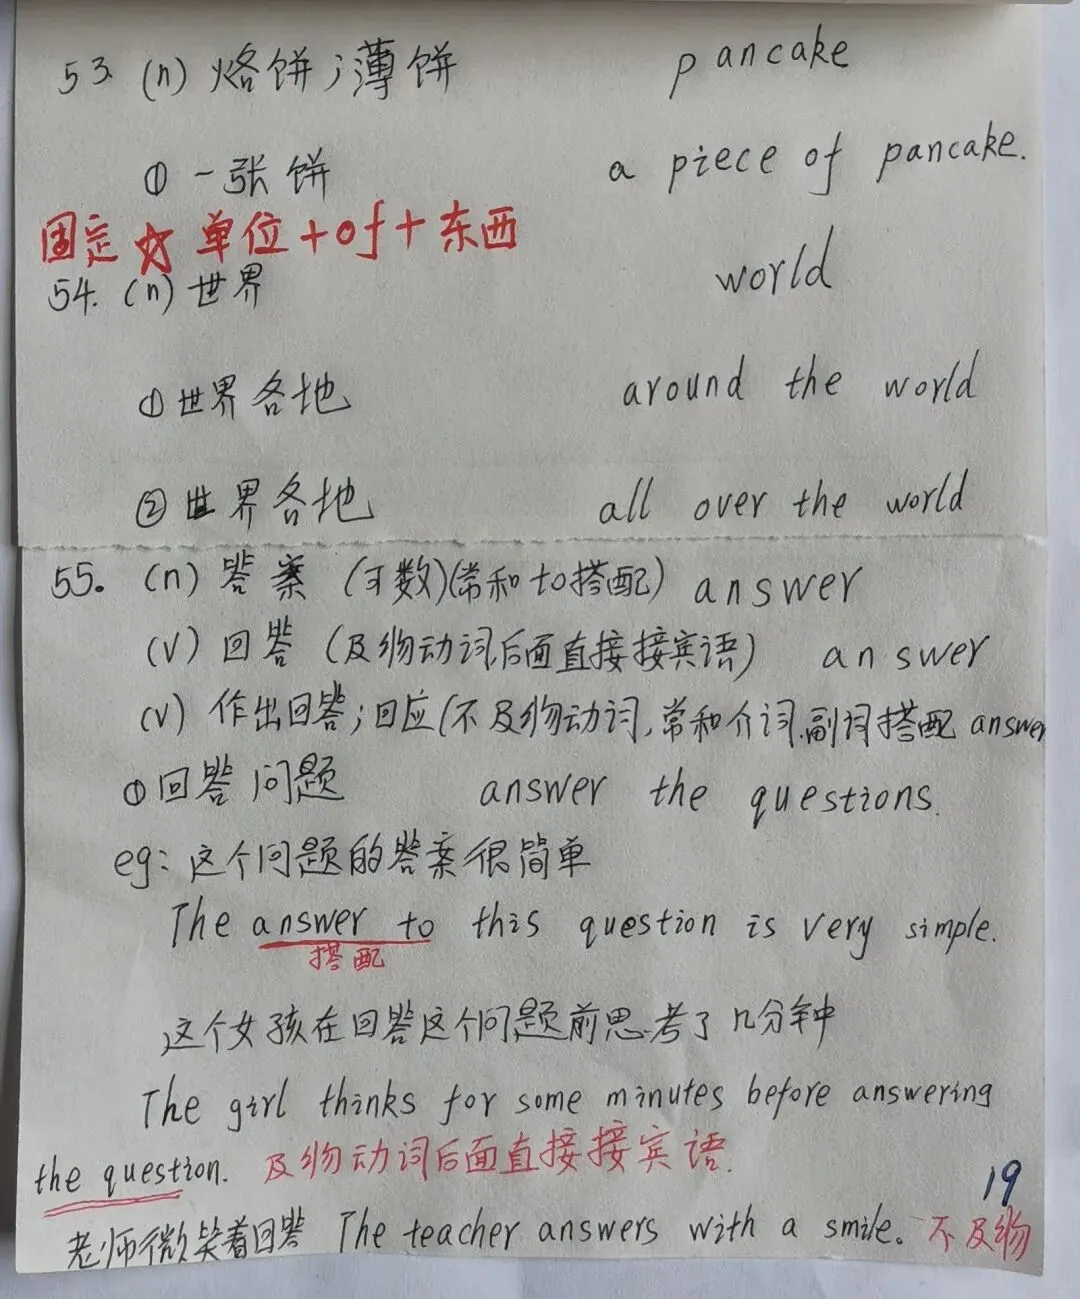 53. (n) 烙饼；薄饼 pancake
① 一张饼 a piece of pancake.
固定 ☆ 单位+of+东西
54. (n) 世界 world
① 世界各地 around the world
② 世界各地 all over the world
55. (n) 答案 (可数)(常和to搭配) answer
(v) 回答 (及物动词,后面直接接宾语) answer
(v) 作出回答；回应(不及物动词,常和介词.副词搭配 answer
① 回答问题 answer the questions.
eg: 这个问题的答案很简单
The answer to this question is very simple.
搭配
这个女孩在回答这个问题前思考了几分钟
The girl thinks for some minutes before answering
the question. 及物动词后面直接接宾语.
19
老师微笑着回答 The teacher answers with a smile. 不及物